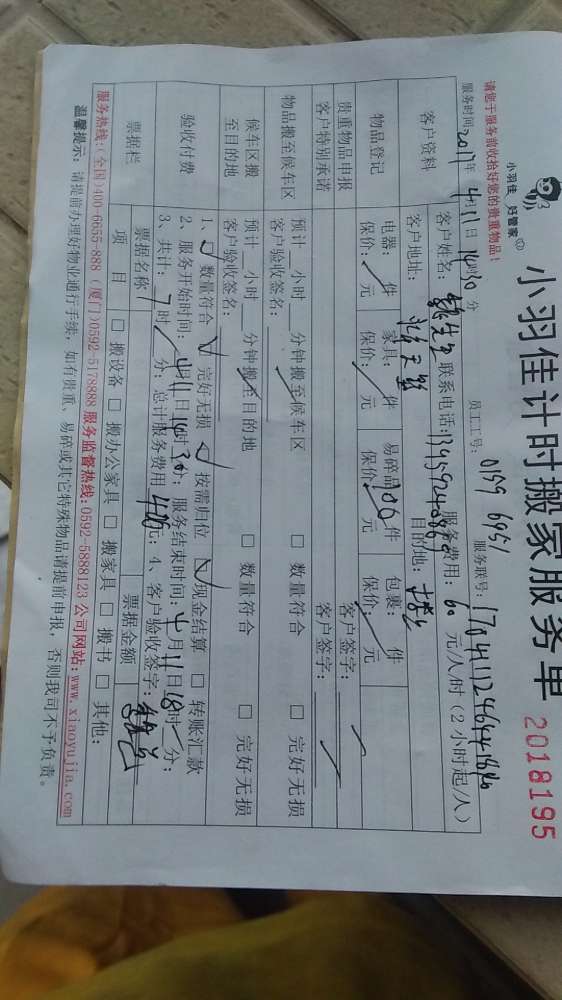 小羽佳 好管家
小羽佳计时搬家服务单 2018195
请您于服务前收拾好您的贵重物品！ 员工工号： 0159 6951 服务联号：
服务时间 2017年 4月11日 14时30分 服务费用：60元/人/时（2小时起/人）
客户资料 客户姓名： 先生 联系电话：
客户地址： 目的地：
物品登记 电器： 件 家具： 件 易碎品 件 包裹： 件
保价： 元 保价： 元 保价： 元 保价： 元
贵重物品申报 客户签字：
客户特别承诺 客户签字：
物品搬至候车区 预计 小时 分钟搬至候车区 □ 数量符合 □ 完好无损
客户验收签名：
候车区搬至目的地 预计 小时 分钟搬至目的地 □ 数量符合 □ 完好无损
客户验收签名：
验收付费 1、☑ 数量符合 ☑ 完好无损 ☑ 按需归位 ☑ 现金结算 □ 转账汇款
2、服务开始时间：4月11日14时30分；服务结束时间：4月11日18时 分；
3、共计：7时 分；总计服务费用 元；4、客户验收签字：
票据栏 票据名称 票据金额
项 目 □ 搬设备 □ 搬办公家具 □ 搬家具 □ 搬书 □ 其他：
服务热线：(全国)400-6655-888 (厦门)0592-5178888 服务监督热线：0592-5888123 公司网站：www.xiaoyujia.com
温馨提示：请提前办理好物业通行手续，如有贵重、易碎或其它特殊物品请提前申报，否则我司不予负责。